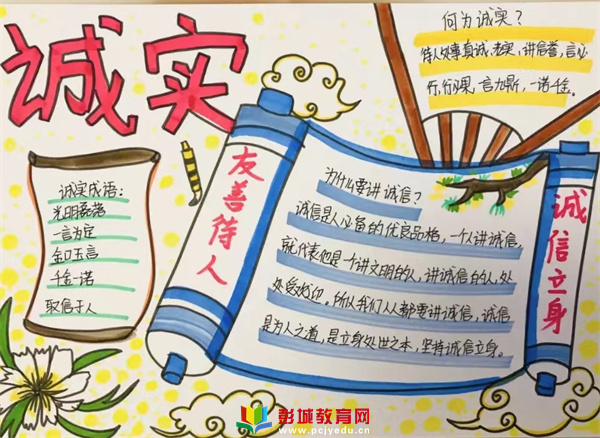 诚实
何为诚实？
待人处事真诚、老实、讲信誉，言必
行、行必果，言九鼎，一诺千金。
诚实成语：
光明磊落
一言为定
金口玉言
千金一诺
取信于人
友善待人
为什么要讲诚信？
诚信是人必备的优良品格，一个人讲诚信，
就代表他是个讲文明的人，讲诚信的人，处
处受欢迎。所以我们人人都要讲诚信，诚信
是为人之道，是立身处世之本，坚持诚信立身。
诚信立身
彭城教育网
www.pcjyedu.cn